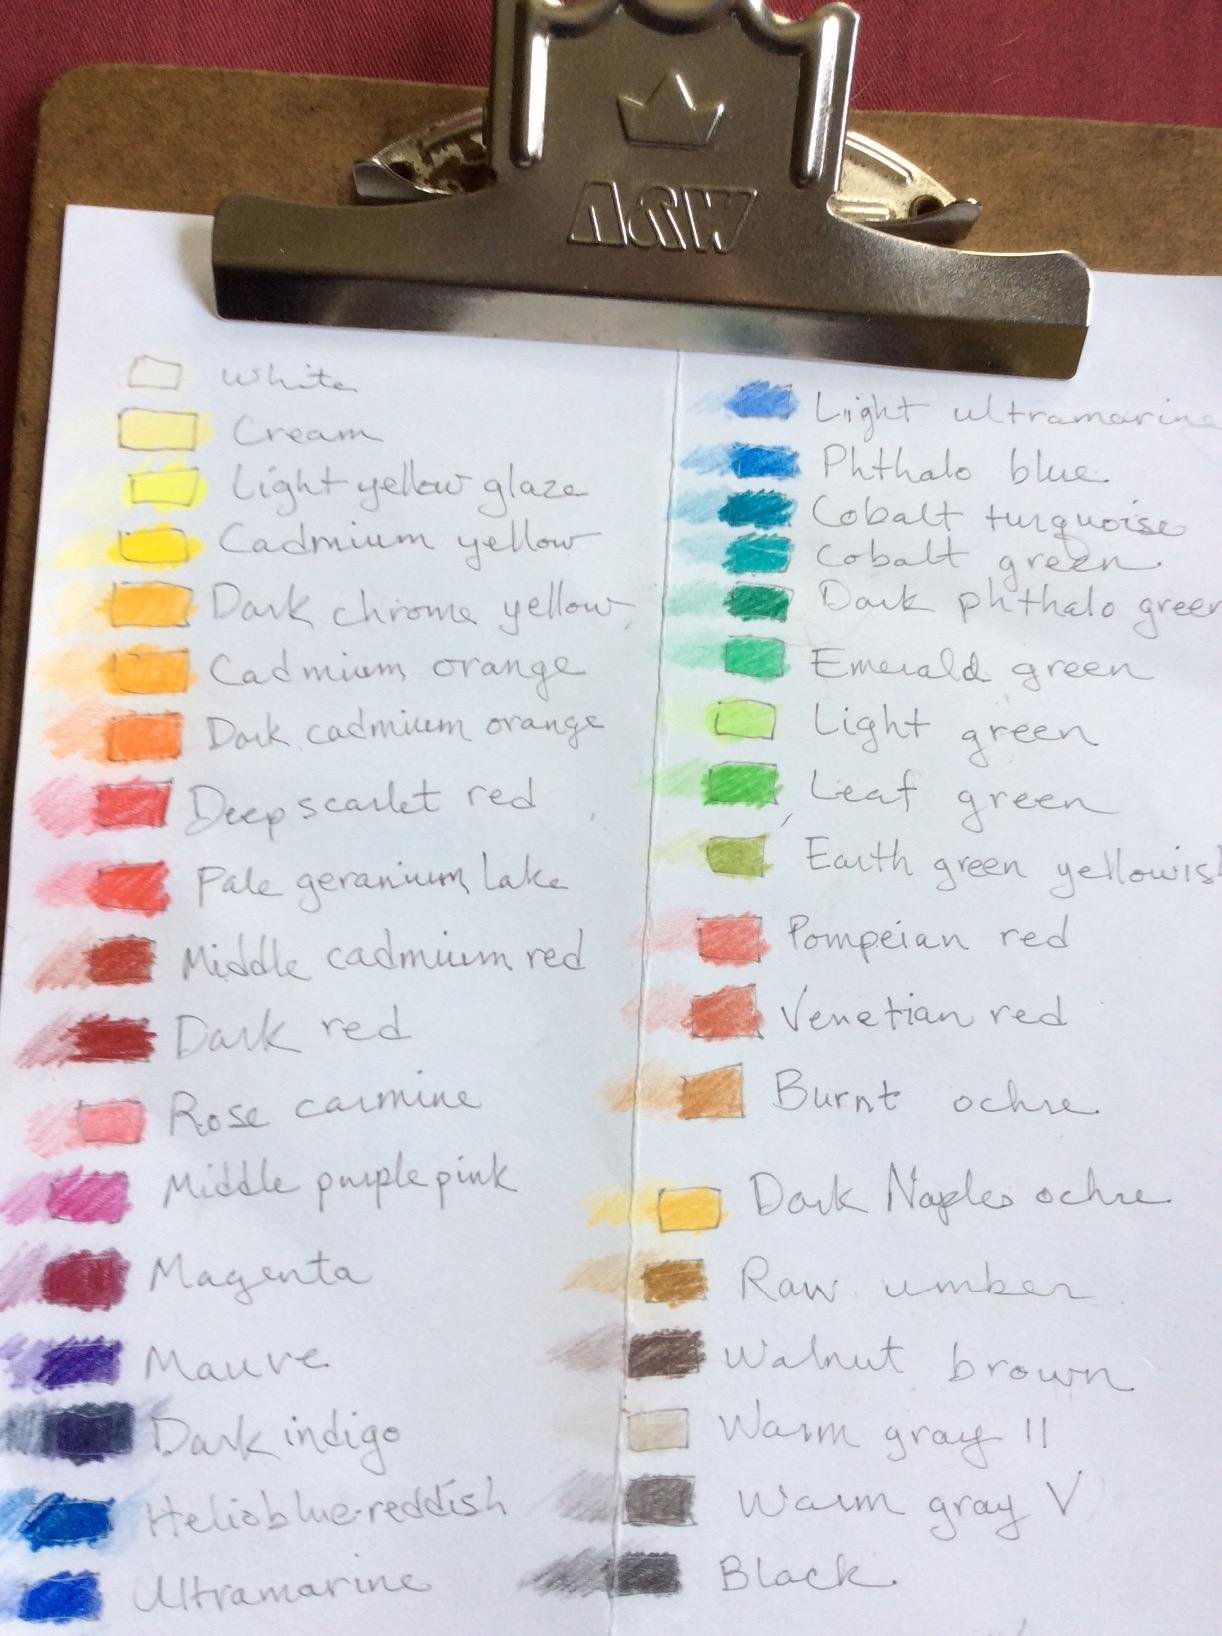 A&W
White
Cream
Light yellow glaze
Cadmium yellow
Dark chrome yellow
Cadmium orange
Dark cadmium orange
Deep scarlet red
Pale geranium lake
Middle cadmium red
Dark red
Rose carmine
Middle purple pink
Magenta
Mauve
Dark indigo
Helioblue-reddish
Ultramarine
Light ultramarine
Phthalo blue
Cobalt turquoise
Cobalt green
Dark phthalo green
Emerald green
Light green
Leaf green
Earth green yellowish
Pompeian red
Venetian red
Burnt ochre
Dark Naples ochre
Raw umber
Walnut brown
Warm gray II
Warm gray V
Black